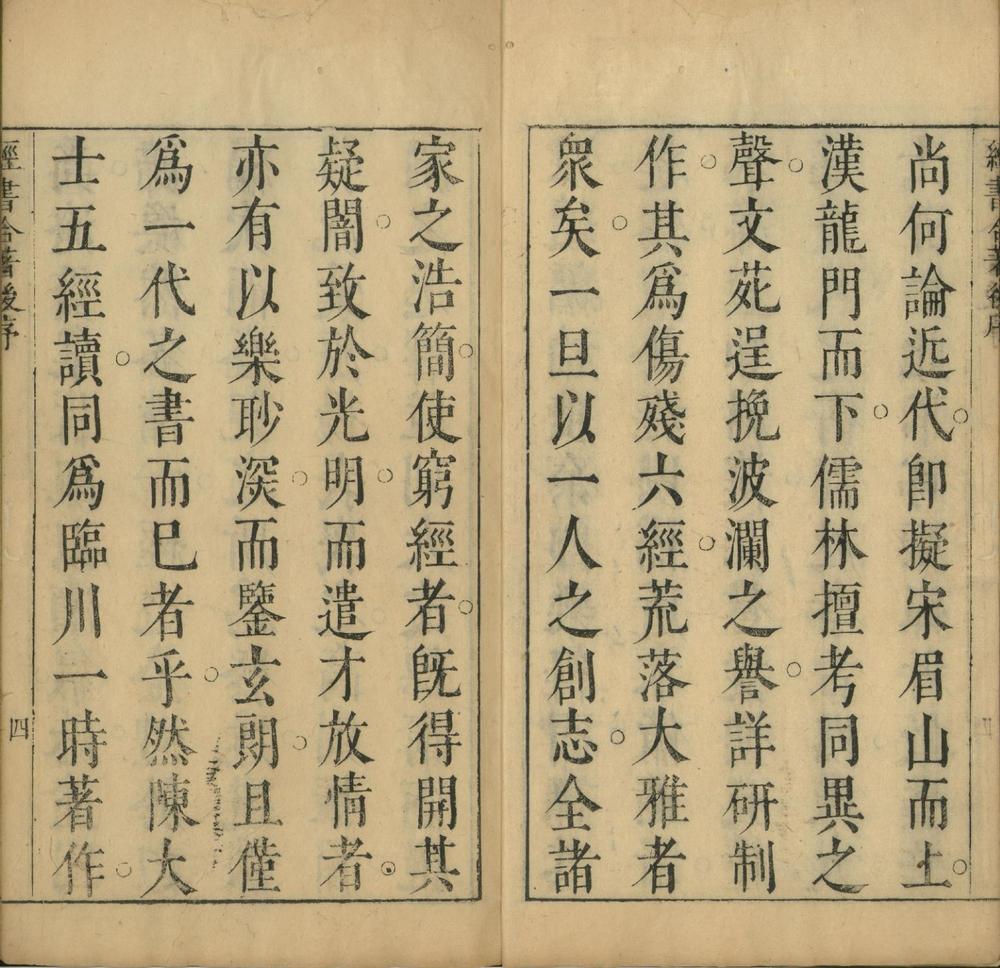 尚何論近代卽擬宋眉山而上
漢龍門而下儒林擅考同異之
聲文苑逞挽波瀾之譽詳研制
作其爲傷殘六經荒落大雅者
衆矣一旦以一人之創志全諸
家之浩簡使窮經者旣得開其
疑闇致於光明而遣才放情者
亦有以樂眇深而鑒玄朗且僅
爲一代之書而巳者乎然陳大
士五經讀同爲臨川一時著作
經書
後序
四